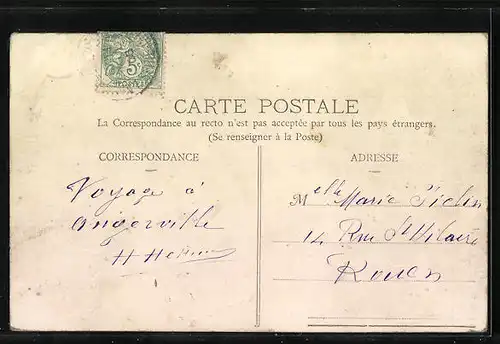 5
CARTE POSTALE
La Correspondance au recto n'est pas acceptée par tous les pays étrangers.
(Se renseigner à la Poste)
CORRESPONDANCE
Voyage à
angerville
ADRESSE
Melle Marie
14 Rue St Hilaire
Rouen